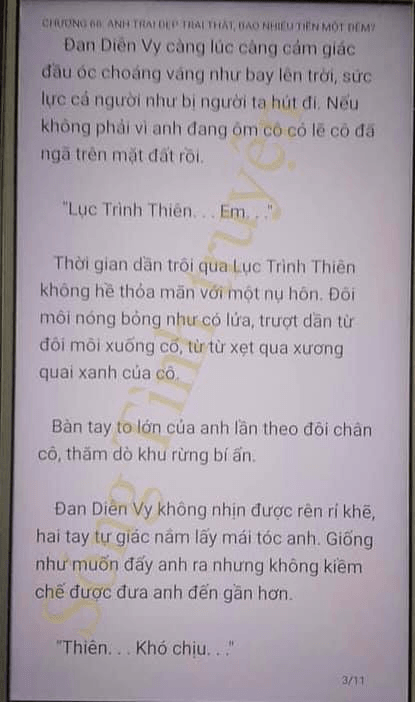 CHƯƠNG 68: ANH TRAI ĐẸP TRAI THẬT, BAO NHIÊU TIỀN MỘT ĐÊM?
Đan Diên Vy càng lúc càng cảm giác
đầu óc choáng váng như bay lên trời, sức
lực cả người như bị người ta hút đi. Nếu
không phải vì anh đang ôm cô có lẽ cô đã
ngã trên mặt đất rồi.
"Lục Trình Thiên. . . Em. . ."
Thời gian dần trôi qua Lục Trình Thiên
không hề thỏa mãn với một nụ hôn. Đôi
môi nóng bỏng như có lửa, trượt dần từ
đôi môi xuống cổ, từ từ xẹt qua xương
quai xanh của cô.
Bàn tay to lớn của anh lần theo đôi chân
cô, thăm dò khu rừng bí ẩn.
Đan Diên Vy không nhịn được rên rỉ khẽ,
hai tay tự giác nắm lấy mái tóc anh. Giống
như muốn đẩy anh ra nhưng không kiềm
chế được đưa anh đến gần hơn.
"Thiên. . . Khó chịu. . ."
3/11
Sóng Tình truyện